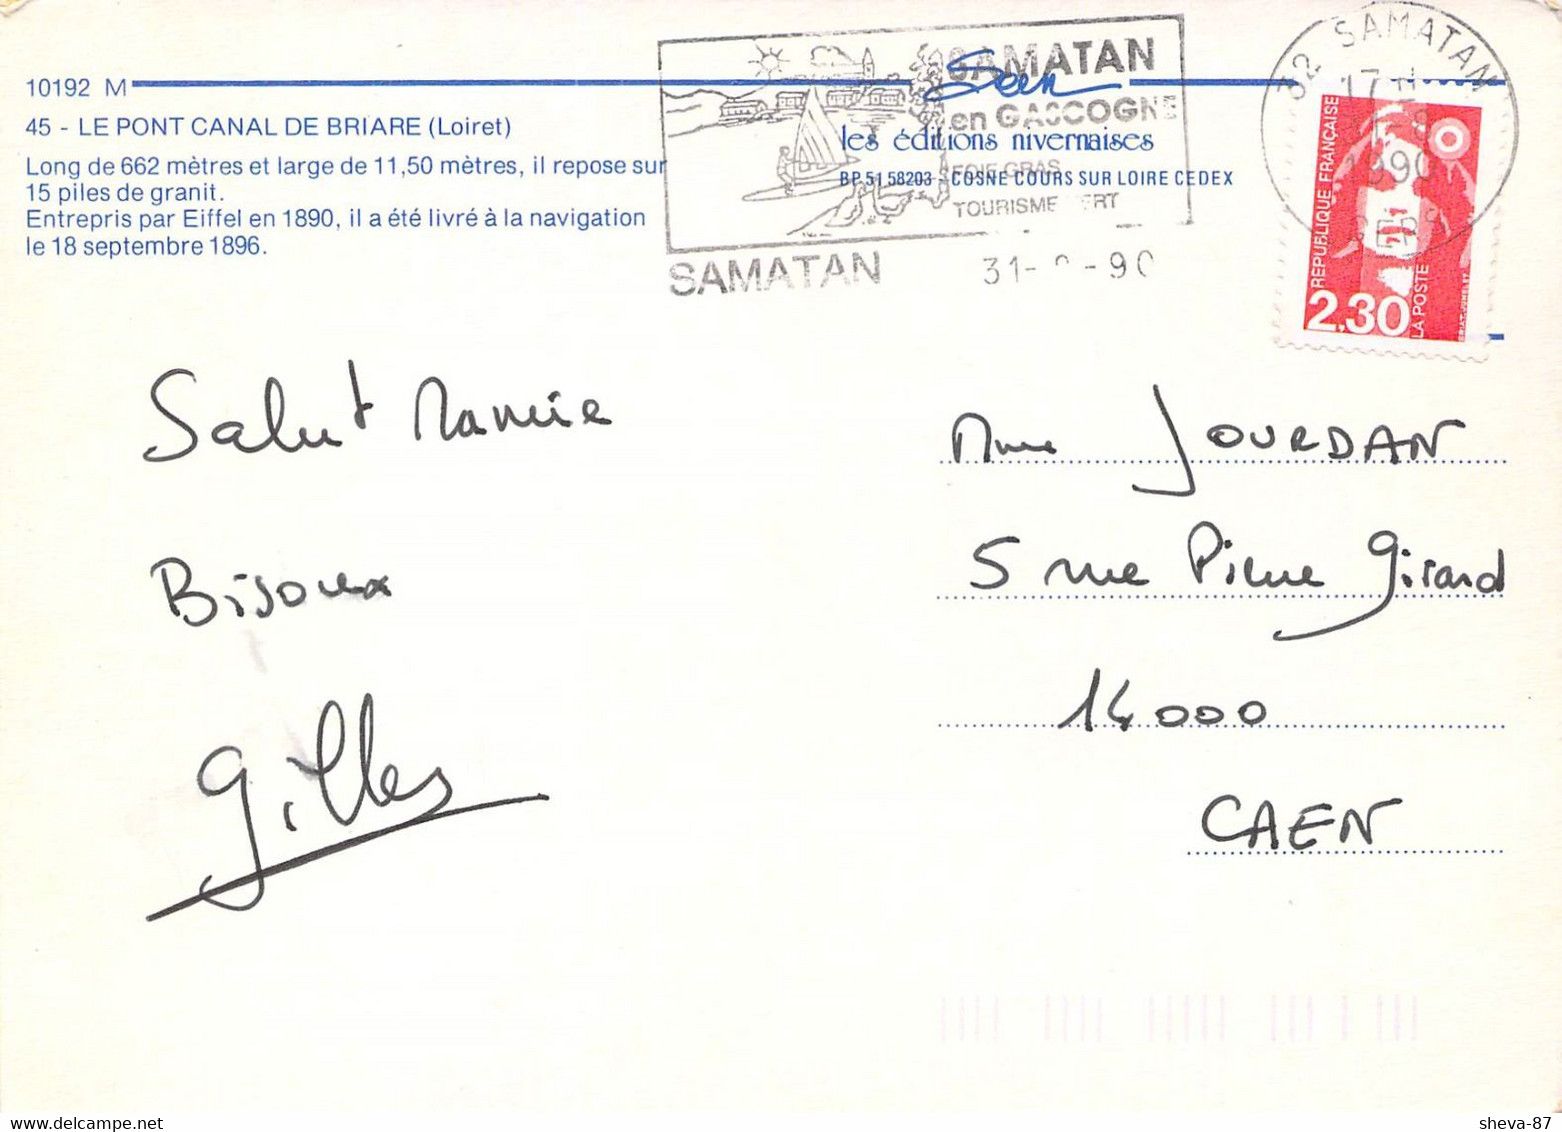 10192 M
45 - LE PONT CANAL DE BRIARE (Loiret)
Long de 662 mètres et large de 11,50 mètres, il repose sur
15 piles de granit.
Entrepris par Eiffel en 1890, il a été livré à la navigation
le 18 septembre 1896.
SAMATAN
en GASCOGNE
FOIE GRAS
TOURISME VERT
SAMATAN
31- -90
les éditions nivernaises
BP 51 58203 - COSNE COURS SUR LOIRE CEDEX
32 SAMATAN
17 H
1990
GERS
RÉPUBLIQUE FRANÇAISE
2,30
LA POSTE
Salut Mamie
Bijoux
Gilles
Mme JOURDAN
5 rue Pierre Girard
14000
CAEN
sheva-87